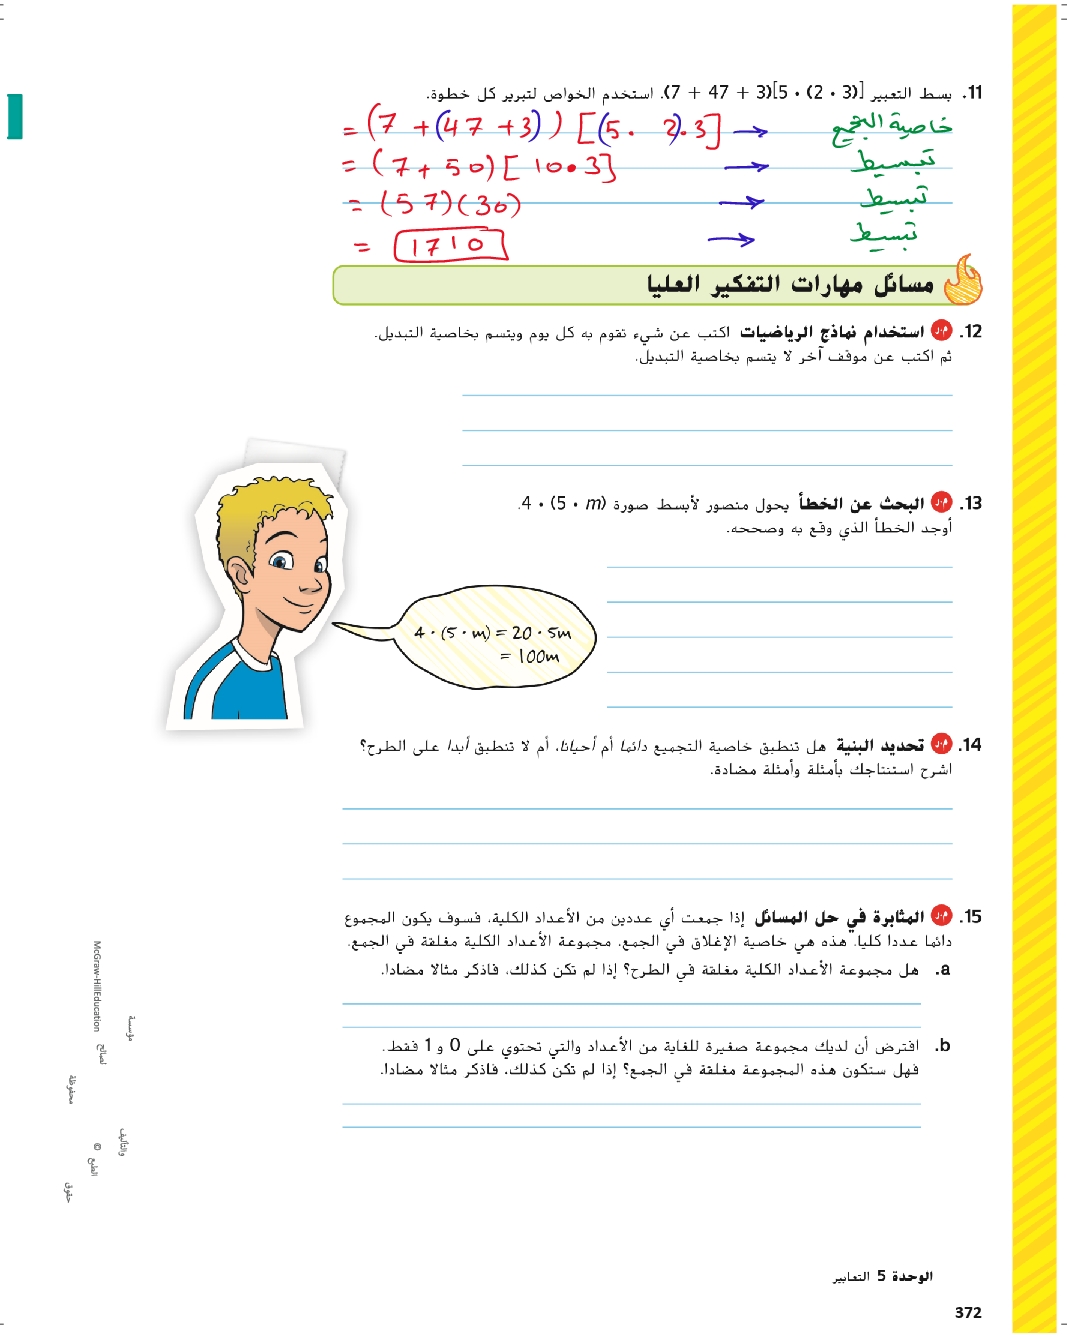 11. بسط التعبير (7 + 47 + 3)[5 · (2 · 3)]. استخدم الخواص لتبرير كل خطوة.
= (7 + (47 + 3)) [(5 · 2) · 3] → خاصية التجميع
= (7 + 50) [10 · 3] → تبسيط
= (57)(30) → تبسيط
= 1710 → تبسيط
مسائل مهارات التفكير العليا
12. م.ر استخدام نماذج الرياضيات اكتب عن شيء تقوم به كل يوم ويتسم بخاصية التبديل.
ثم اكتب عن موقف آخر لا يتسم بخاصية التبديل.
13. م.ر البحث عن الخطأ يحول منصور لأبسط صورة 4 · (5 · m).
أوجد الخطأ الذي وقع به وصححه.
4 · (5 · m) = 20 · 5m
= 100m
14. م.ر تحديد البنية هل تنطبق خاصية التجميع دائما أم أحيانا، أم لا تنطبق أبدا على الطرح؟
اشرح استنتاجك بأمثلة وأمثلة مضادة.
15. م.ر المثابرة في حل المسائل إذا جمعت أي عددين من الأعداد الكلية، فسوف يكون المجموع
دائما عددا كليا. هذه هي خاصية الإغلاق في الجمع. مجموعة الأعداد الكلية مغلقة في الجمع.
a. هل مجموعة الأعداد الكلية مغلقة في الطرح؟ إذا لم تكن كذلك، فاذكر مثالا مضادا.
b. افترض أن لديك مجموعة صغيرة للغاية من الأعداد والتي تحتوي على 0 و 1 فقط.
فهل ستكون هذه المجموعة مغلقة في الجمع؟ إذا لم تكن كذلك، فاذكر مثالا مضادا.
حقوق الطبع © والتأليف
محفوظة لصالح مؤسسة
McGraw-HillEducation
الوحدة 5 التعابير
372